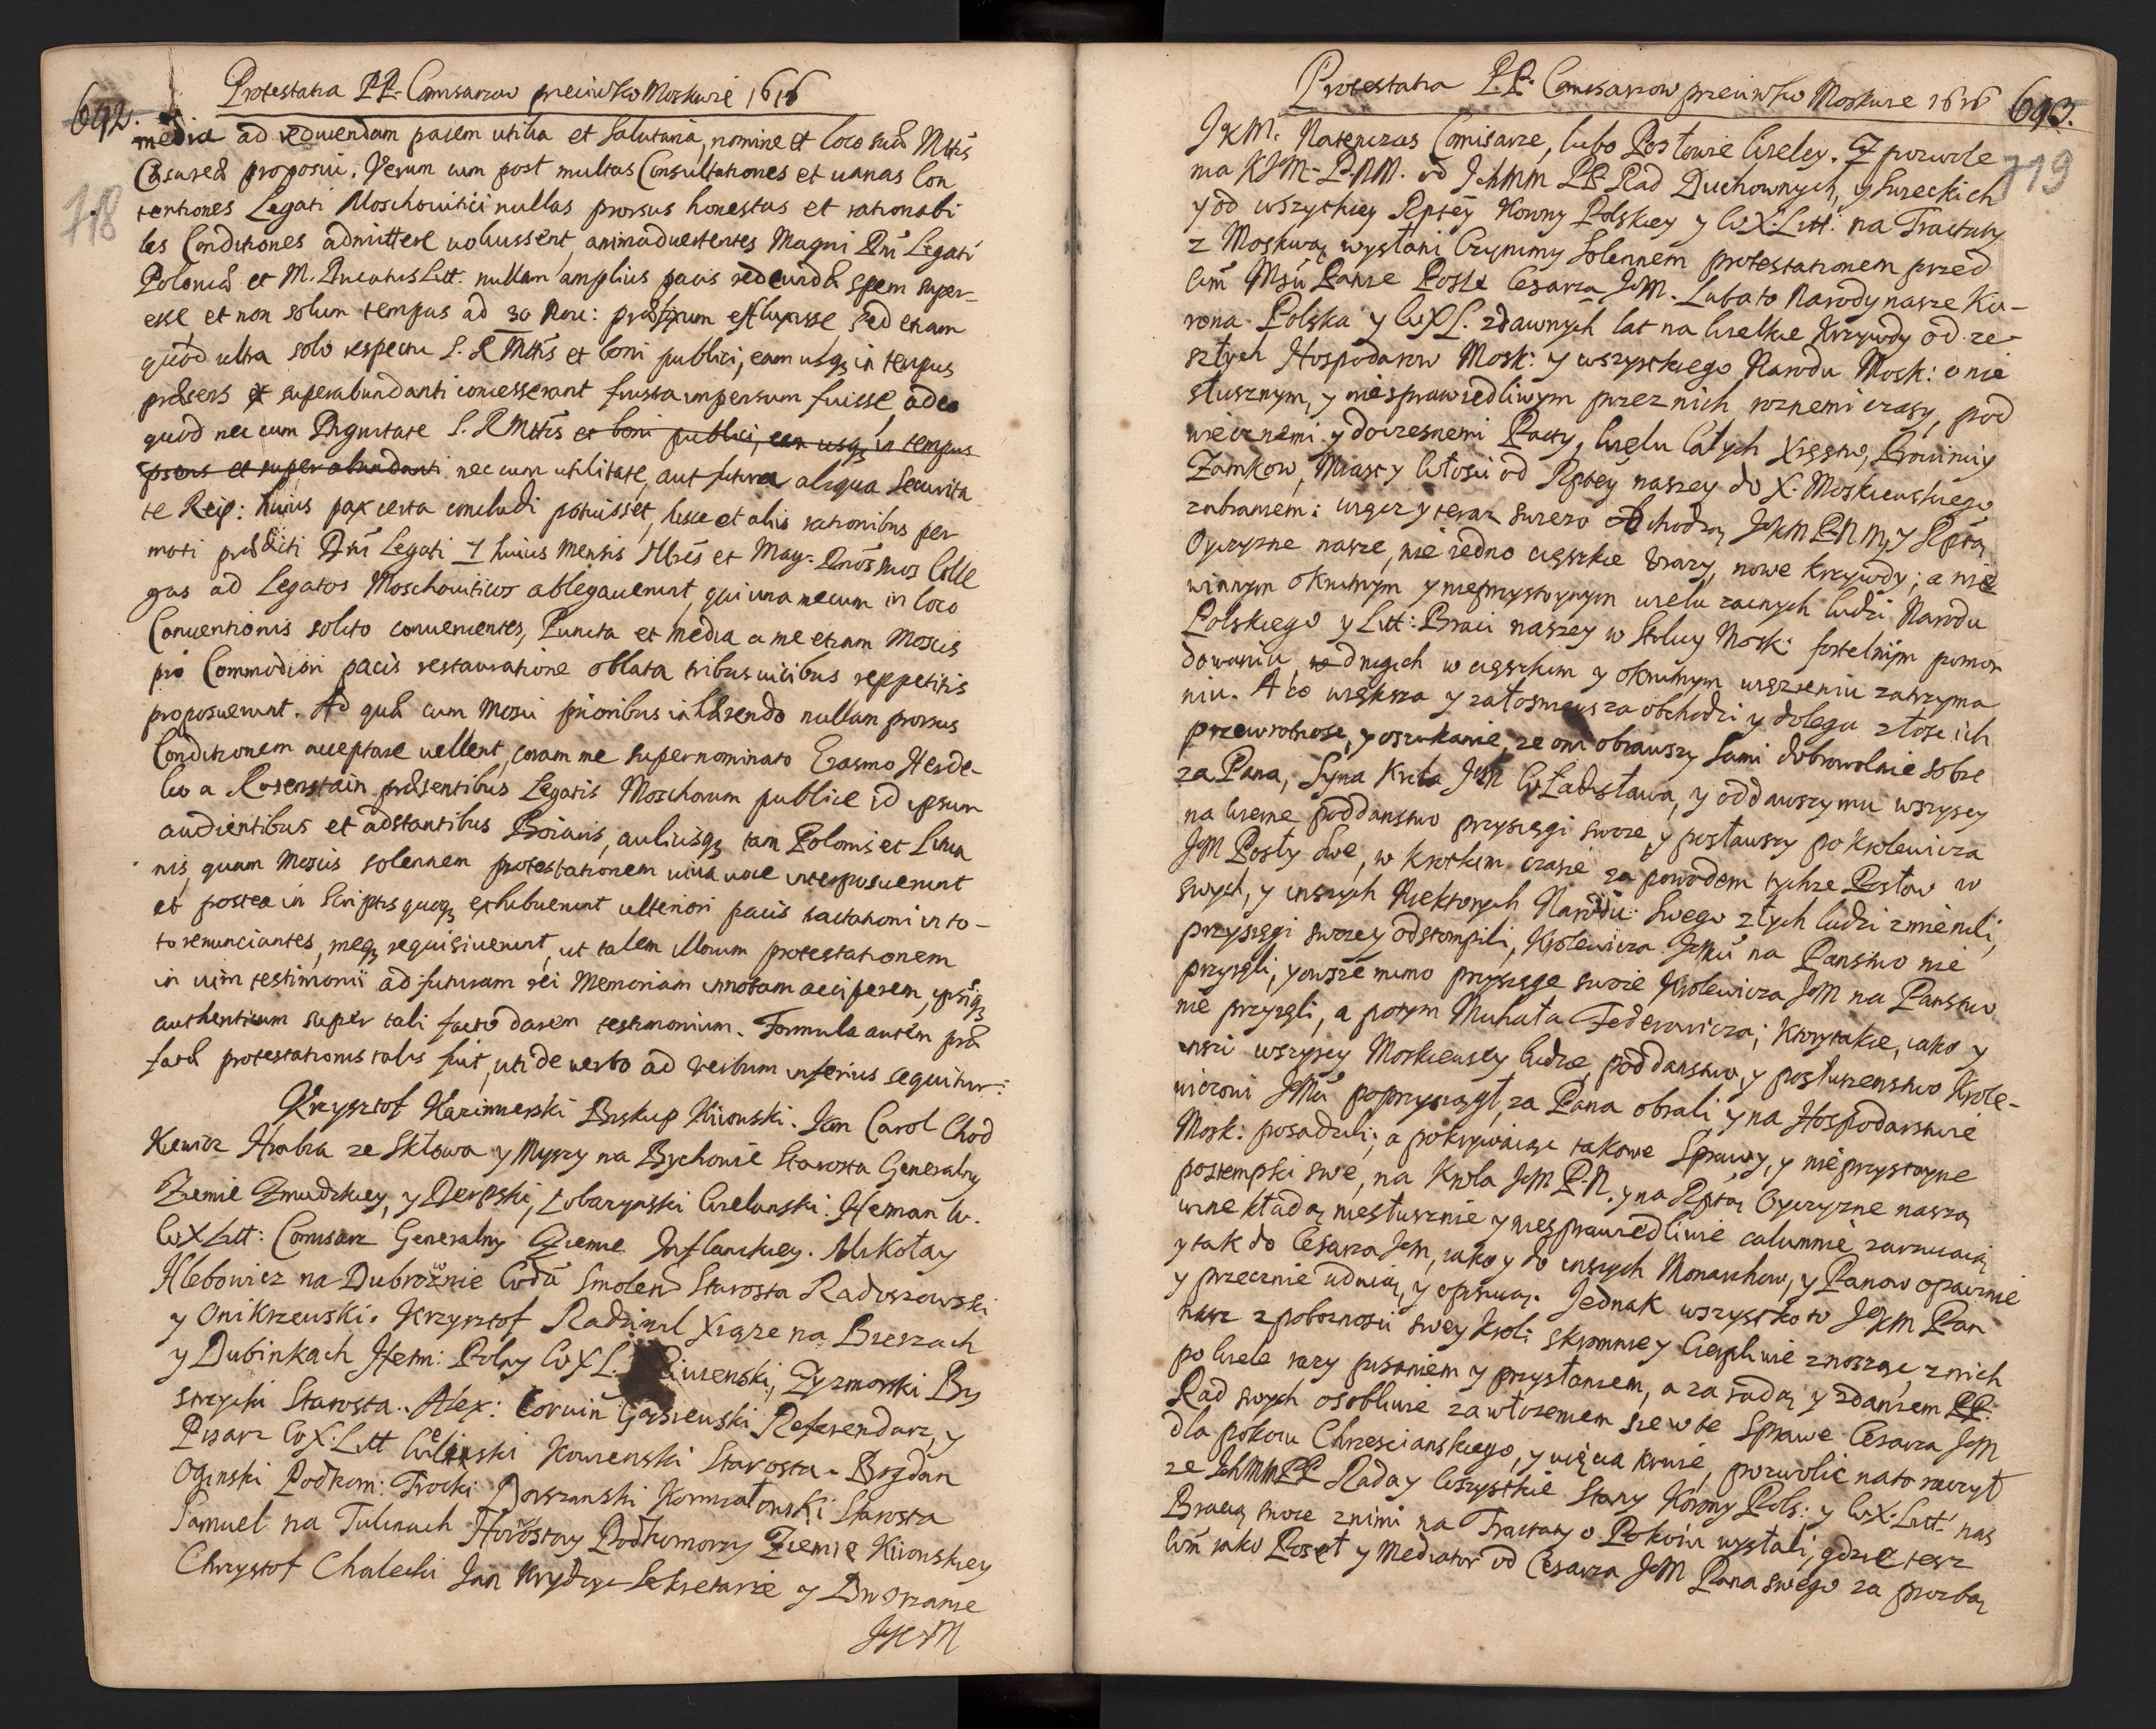 692.
Protestatia PP. Comisarzow przeciwko Moskwie 1616
718
media ad reducendam pacem utilia et Salutaria, nomine et loco suæ Mttis
Cæsareæ proposui. Verum cum post multas Consultationes et uanas Con
tentiones Legati Moschouitici nullas prorsus honestas et rationabi
les Conditiones admittere uoluissent, animaduertentes Magni Dni Legati
Poloniæ et M. Ducatus Litt. nullam amplius pacis reducendæ spem super-
esse et non solum tempus ad 30 Nou: præfixum effluxisse sed etiam
quod ultra solo respectu S. R Mttis et boni publici, eam usq3 in tempus
præsens ex superabundanti concesserant frustra impensum fuisse, adeo
quod nec cum Dignitate S. R Mttis et boni publici, eam usq3 in tempus
psens et super abundanti nec cum utilitate, aut futura aliqua Securita
te Reip: huius pax certa concludi potuisset, hisce et aliis rationibus per
moti prædicti Dni Legati 7 huius Mensis Xbris et Mag: Dnos suos Colle
gas ad Legatos Moschouiticos ablegauerunt, qui una mecum in loco
Conuentionis solito conuenientes, Puncta et media a me etiam Moscis
pro Commodiori pacis restauratione oblata tribus uicibus reppetitis
proposuerunt. Ad quæ cum Mosci prioribus inhærendo nullam prorsus
Conditionem acceptare uellent, coram me supernominato Erasmo Heide-
lio a Rosenstain præsentibus Legatis Moschorum publice id ipsum
audientibus et adstantibus Boiaris, aulicisq3 tam Polonis et Litua
nis, quam Moscis solennem protestationem uiua uoce interposuerunt
et postea in Scriptis quoq3 exhibuerunt ulteriori pacis tractationi in to-
to renunciantes, meq3 requisiuerunt, ut talem illorum protestationem
in uim testimonii ad futuram rei Memoriam in notam acciperem, ipsisq3
authenticum super tali facto darem testimonium. Formula autem præ
fatæ protestationis talis fuit, uti de uerbo ad verbum inferius sequitur:
Krzysztof Kazimierski Biskup Kiiowski. Jan Carol Chod
Kiewicz Hrabia ze Skłowa y Myszy na Bychowie Starosta Generalny
Ziemie Zmudzkiey, y Derpski, Lubarynski Wielunski. Hetman W.
WXLitt: Comisarz Generalny Ziemie Inflanckiey. Mikołay
Hlebowicz na Dubrownie Woda Smolen Starosta Radoszowski
y Onikszewski. Krzysztof Radziwil Xiąze na Bierzach
y Dubinkach Hetm: Polny WXL. Ziwienski, Zyzmorski By
strzycki Starosta. Alex: Corwin Gąsiewski Referendarz, y
Pisarz WX. Litt Wielizski Kowienski Starosta. Bogdan
Oginski Podkom: Trocki Dorszunski Kormiałowski Starosta
Samuel na Tulinach Horostay Podkomorzy Ziemie Kiiowskiey
Chrzystof Chalecki Jan Hrydzicz Sekretarze y Dworzanie
JKM
Protestatia P.P. Comisarzow przeciwko Moskwie 1616
693.
719
JKM. Natenczas Comisarze, lubo Posłowie Wielcy. Z pozwole
nia KJM. P.NM. od Ichmm PP Rad Duchownych, y Swieckich
y od wszytkiey Rptey Korony Polskiey y WX: Litt: na Tractaty
z Moskwą wysłani Czynimy Solennem protestationem przed
Wm Msci Panie Posle Cesarza JeM. Lubato Narody nasze Ko-
rona Polska y WXL. zdawnych lat na Wielkie Krzywdy od ze
szłych Hospodarow Mosk: y wszystkiego Narodu Mosk: o nie
słusznym, y niesprawiedliwym przez nich roznemi czasy, pod
wiecznemi y doczesnemi Pacty, wielu Całych Xięstw, Prowinciy
Zamkow, Miast y Włosci od Rptey naszey do X. Moskiewskiego
zabraniem: wszcz y teraz swiezo obchodzą JeKm PNM y Rptą
Oyczyzne nasze, nie iedno cięszkie Urazy, nowe krzywdy; a nie
winnym okrutnym y nieprzystoynym wielu zacnych ludzi Narodu
Polskiego y Litt: Braci naszey w Stolicy Mosk: fortelnym pomor
dowaniu drugich w cięszkim y okrutnym więzieniu zatrzyma
niu. A co większa y załosnieysza obchodzi y dolega złose ich
przewrotnose, y oszukanie, ze oni obrawszy sami dobrowolnie sobie
za Pana, Syna Krola JeM Władisława, y oddawszy mu wszyscy
na wierne poddanstwo przysięgi swoie y posławszy po Krolewicza
JeM Posły swe, w krotkim czasie za powodem tychze Posłow w
swych, y inszych Niektorych Narodu Swego złych ludzi zmienili,
przysięgi swoiey odstompili, Krolewicza JeMci na Panstwo nie
przyięli, y owsze mimo przysięge swoie Krolewicza JeM na Panstwo
nie przyięli, a potym Michała Federowicza; Ktory takie, iako y
inszi wszyscy Moskiewscy ludzie, poddanstwo y posłuszenstwo Krole-
wiczowi JeMci poprzysiągł, za Pana obrali y na Hospodarstwie
Mosk: posadzili; a pokrywaiąc takowe Sprawy, y nieprzystoyne
postempki swe, na Krola JeM P.N. y na Rptą Oyczyzne naszą
wine kładą niesłusznie y niesprawiedliwie calumnie zarzucaią
y tak do Cesarza Jem, iako y do inszych Monarchow, y Panow opacznie
y przecznie udaią, y opisuią. Jednak wszystko to JeKm Pan
nasz z poboznosci swey Kroli skromnie y Cierpliwie znosząc z nich
po wiele razy pisaniem y przysłaniem, a za radą y zdaniem PP.
Rad swych osobliwie za włozeniem sie w te Sprawe Cesarza JeM
dla pokoiu Chrzescianskiego, y uięcia krwie, pozwolić na to raczył
ze IchMm PP Rada y Wszystkie Stany Korony Pols: y WX. Litt: nas
Bracią swoie z nimi na Tractaty o Pokoiu wysłali, gdzie tesz
Wm iako Poseł y Mediator od Cesarza JeM Pana swego za prozbą